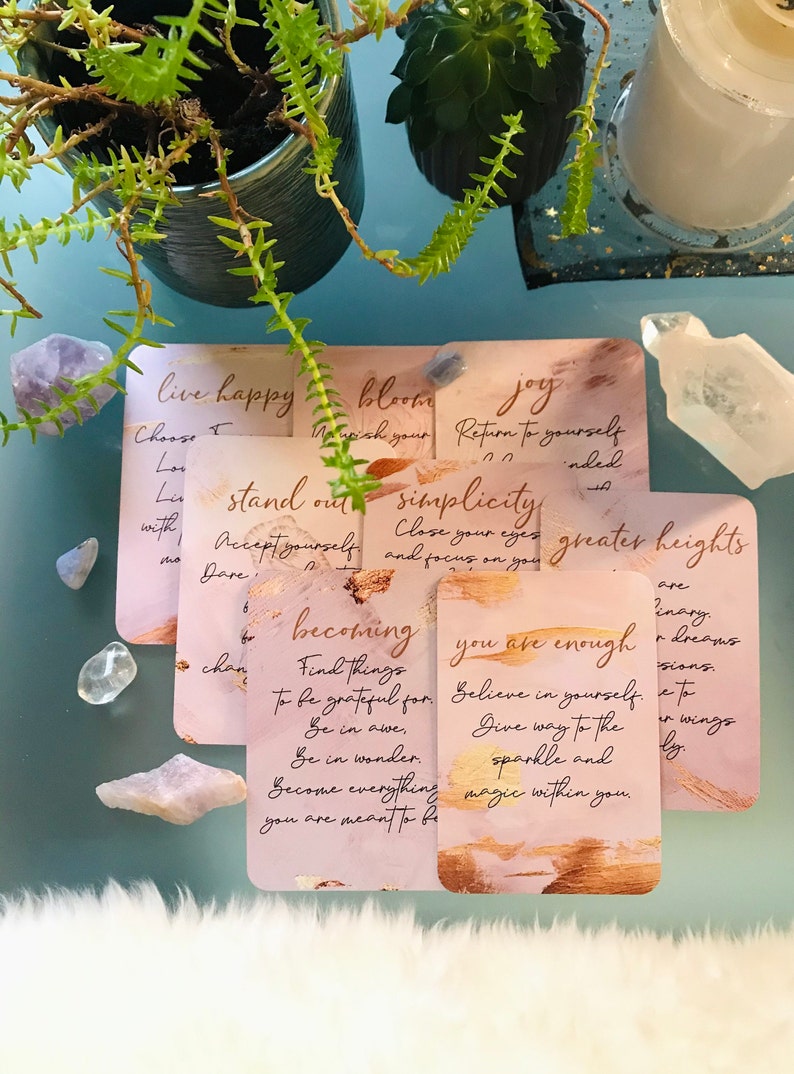 live happy
Choose
Lov
Li
with
mo
bloom
Nourish your
joy
Return to yourself
nded
stand out
Accept yourself.
Dare
chan
simplicity
Close your eyes
and focus on you
greater heights
are
inary.
r dreams
ssions.
e to
ur wings
ly.
becoming
Find things
to be grateful for.
Be in awe,
Be in wonder.
Become everything
you are meant to be
you are enough
Believe in yourself.
Give way to the
sparkle and
magic within you.